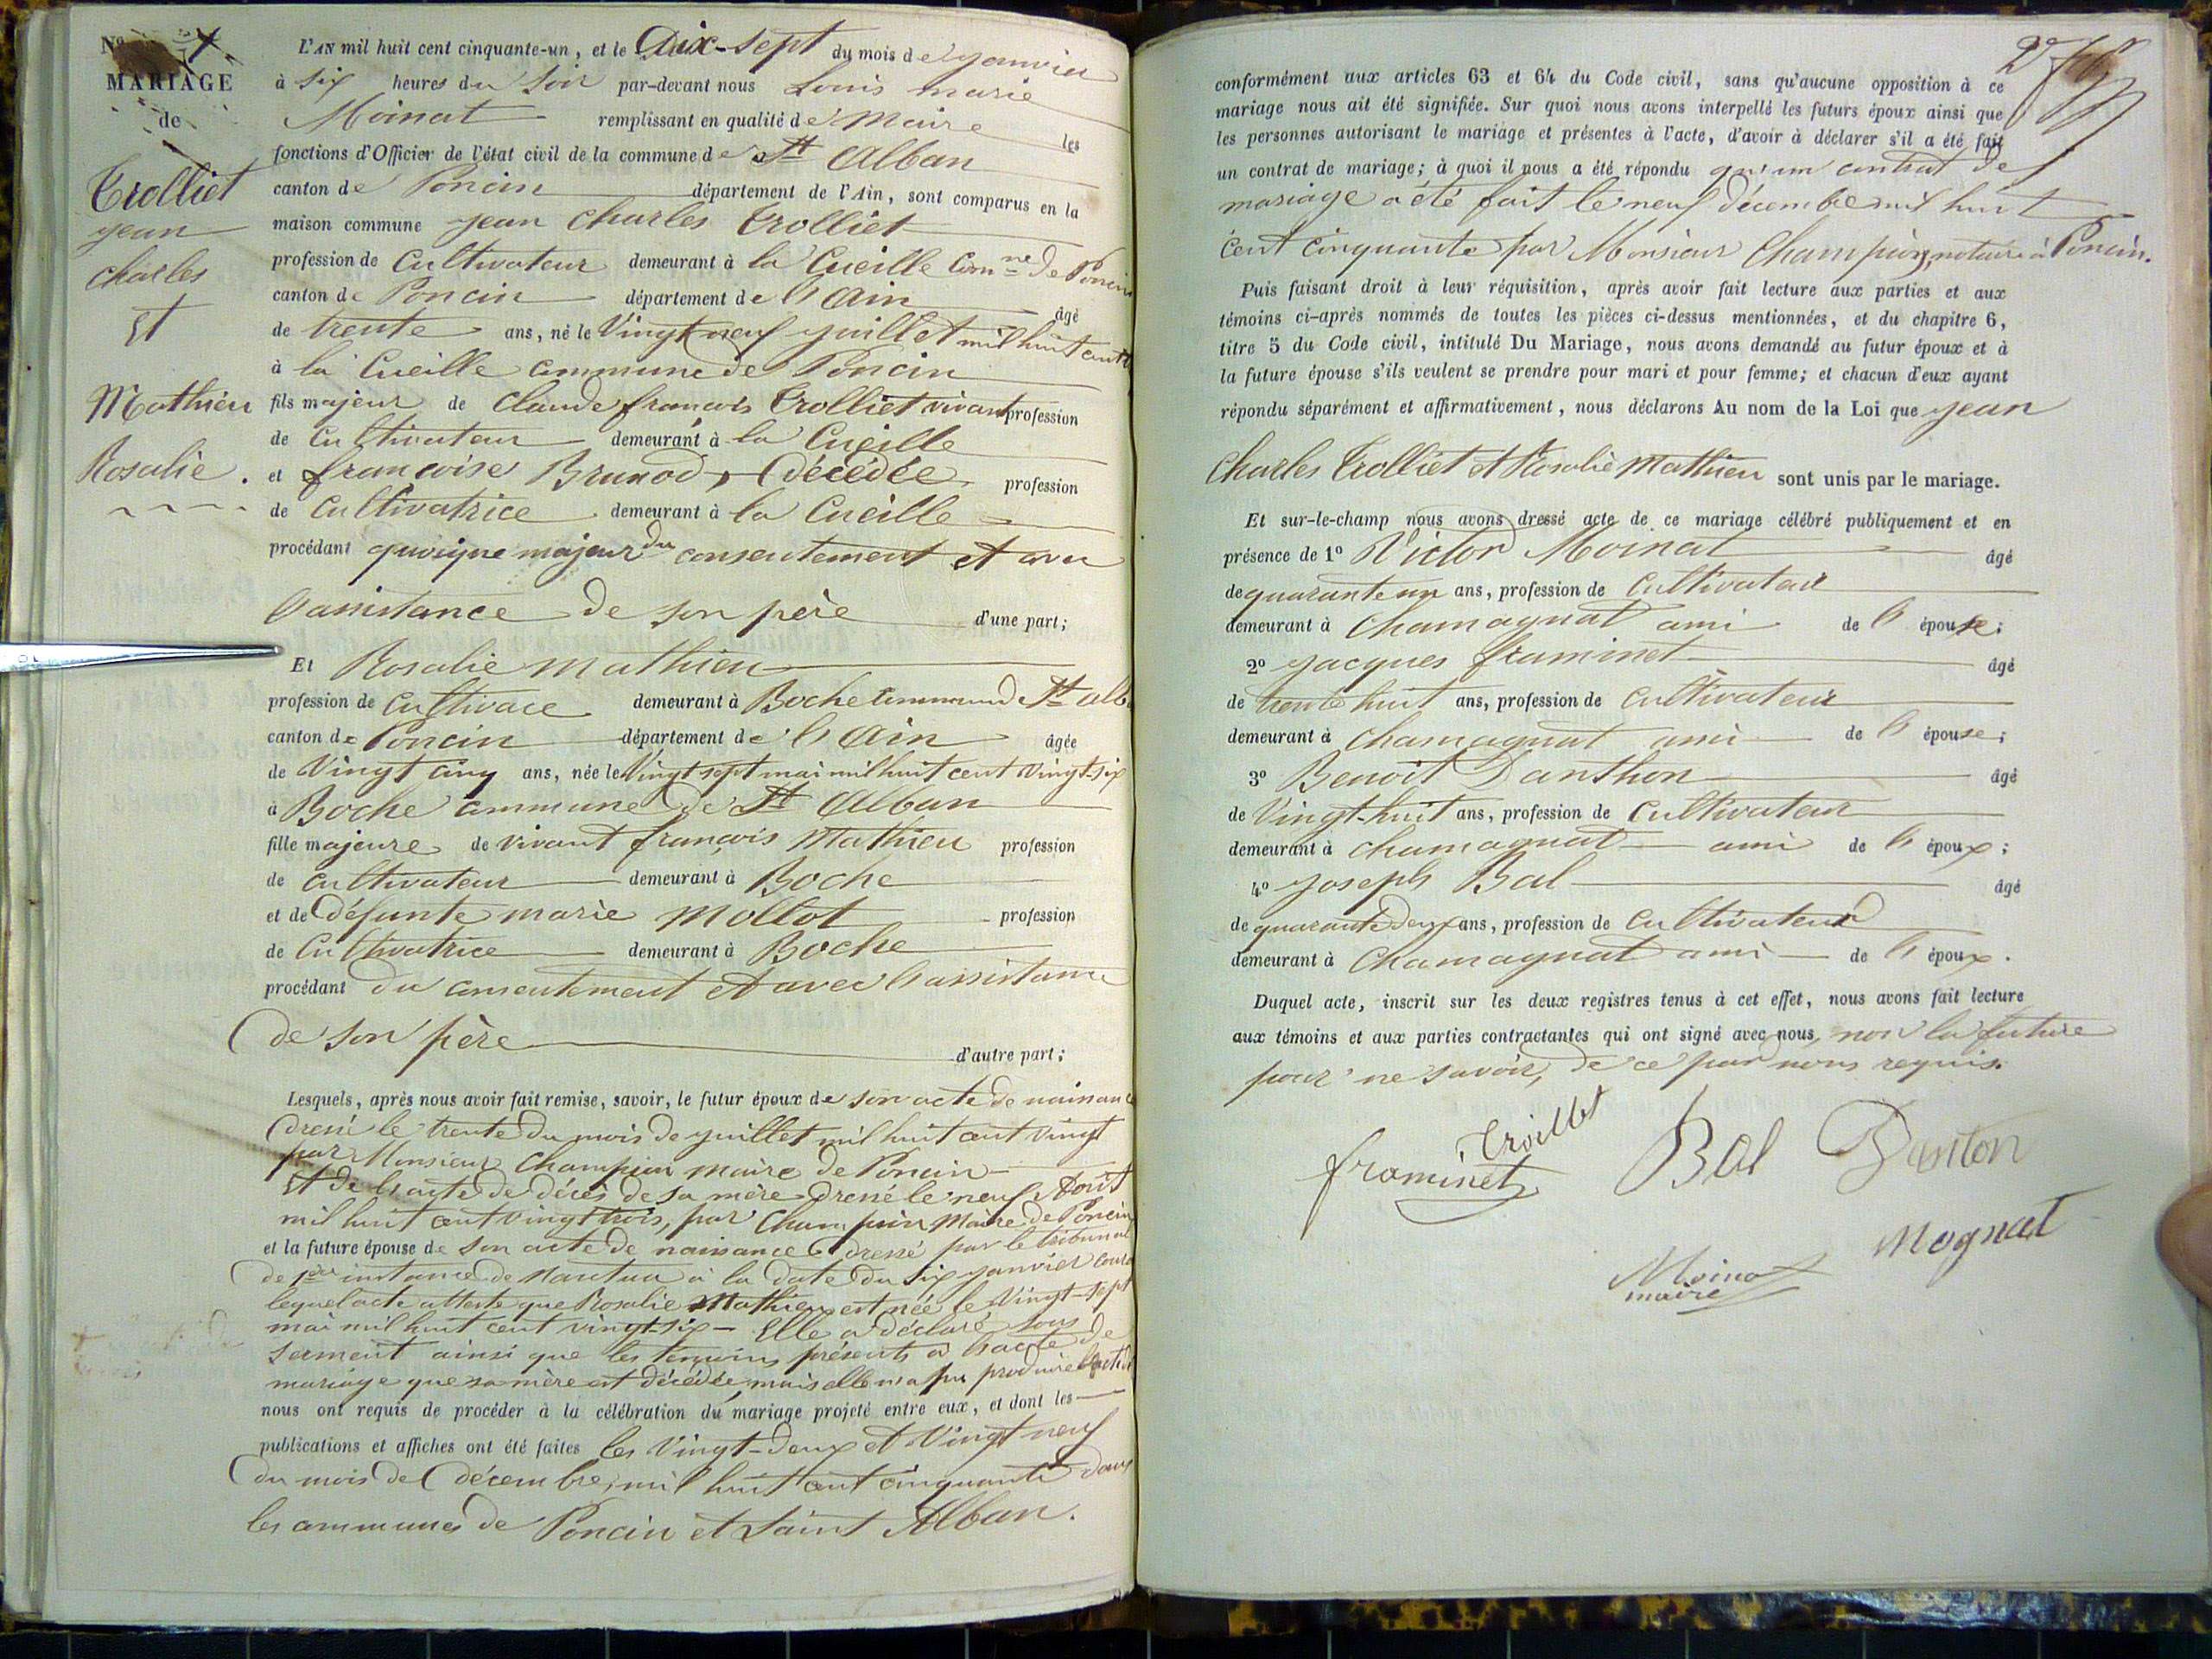 Nº 1
MARIAGE
de
Trolliet
jean
charles
Et
Mathieu
Rosalie.
L'AN mil huit cent cinquante-un, et le Dix-sept du mois de janvier
à six heures du soir par-devant nous Louis marie
Moinat remplissant en qualité de Maire les
fonctions d'Officier de l'état civil de la commune de St Alban
canton de Poncin département de l'Ain, sont comparus en la
maison commune jean charles Trolliet
profession de Cultivateur demeurant à la Cueille Comne de Poncin
canton de Poncin département de l'Ain âgé
de trente ans, né le Vingt neuf juillet mil huit cent
à la Cueille commune de Poncin
fils majeur de Claude françois Trolliet vivant profession
de Cultivateur demeurant à la Cueille
et françoise Brunod, décédée profession
de Cultivatrice demeurant à la Cueille
procédant quoique majeur du consentement et avec
l'assistance de son père d'une part;
Et Rosalie Mathieu
profession de Cultivace demeurant à Boche commune de St alb
canton de Poncin département de l'Ain âgée
de Vingt cinq ans, née le Vingt sept mai mil huit cent vingt-six
à Boche commune de St Alban
fille majeure de vivant françois Mathieu profession
de cultivateur demeurant à Boche
et de défunte marie Mollot profession
de Cultivatrice demeurant à Boche
procédant du consentement et avec l'assistance
de son père d'autre part;
Lesquels, après nous avoir fait remise, savoir, le futur époux de son acte de naissance
dressé le trente du mois de juillet mil huit cent vingt
par Monsieur Champion maire de Poncin
Et de l'acte de décès de sa mère dressé le neuf Août
mil huit cent vingt trois, par Champion Maire de Poncin
et la future épouse de son acte de naissance dressé par le tribunal
de 1ère instance de Nantua à la date du six janvier courant
lequel acte atteste que Rosalie Mathieu est née le Vingt-sept
mai mil huit cent vingt-six - Elle a déclaré sous
serment ainsi que les témoins présents à l'acte de
mariage que sa mère est décédée, mais elle n'a pu produire l'acte de
nous ont requis de procéder à la célébration du mariage projeté entre eux, et dont les
publications et affiches ont été faites les Vingt-deux et Vingt neuf
du mois de décembre, mil huit cent cinquante dans
les communes de Poncin et Saint Alban.
2e
conformément aux articles 63 et 64 du Code civil, sans qu'aucune opposition à ce
mariage nous ait été signifiée. Sur quoi nous avons interpellé les futurs époux ainsi que
les personnes autorisant le mariage et présentes à l'acte, d'avoir à déclarer s'il a été fait
un contrat de mariage; à quoi il nous a été répondu qu'un contrat de
mariage a été fait le neuf décembre mil huit
cent cinquante par Monsieur Champion, notaire à Poncin.
Puis faisant droit à leur réquisition, après avoir fait lecture aux parties et aux
témoins ci-après nommés de toutes les pièces ci-dessus mentionnées, et du chapitre 6,
titre 5 du Code civil, intitulé Du Mariage, nous avons demandé au futur époux et à
la future épouse s'ils veulent se prendre pour mari et pour femme; et chacun d'eux ayant
répondu séparément et affirmativement, nous déclarons Au nom de la Loi que jean
Charles Trolliet et Rosalie Mathieu sont unis par le mariage.
Et sur-le-champ nous avons dressé acte de ce mariage célébré publiquement et en
présence de 1º Victor Moinat âgé
de quarante un ans, profession de Cultivateur
demeurant à Chamagnat ami de l'épouse;
2º jacques framinet âgé
de trente huit ans, profession de cultivateur
demeurant à Chamagnat ami de l'épouse;
3º Benoit Danthon âgé
de Vingt-huit ans, profession de Cultivateur
demeurant à Chamagnat ami de l'époux;
4º joseph Bal âgé
de quarante deux ans, profession de Cultivateur
demeurant à Chamagnat ami de l'époux.
Duquel acte, inscrit sur les deux registres tenus à cet effet, nous avons fait lecture
aux témoins et aux parties contractantes qui ont signé avec nous, non la future
pour ne savoir, de ce par nous requis.
Troillet
framinet Bal Danton
Mognat
Moinat
maire